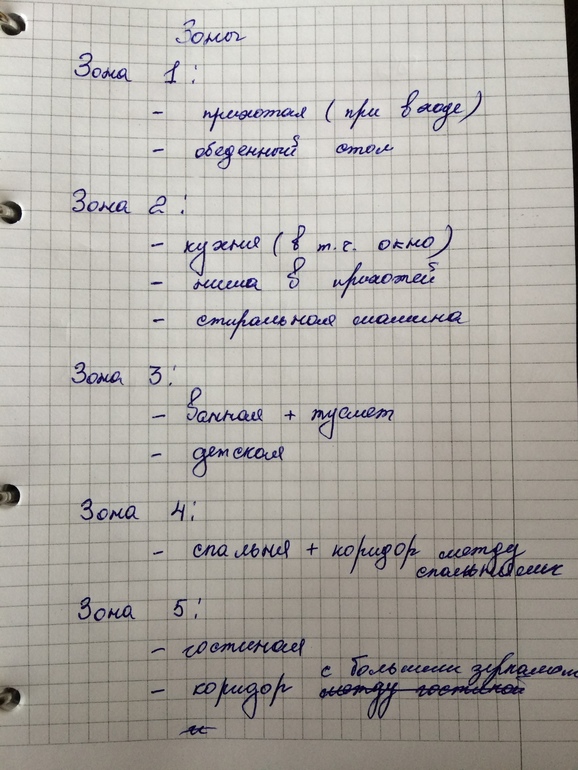 Зоны
Зона 1:
- прихожая (при входе)
- обеденный стол
Зона 2:
- кухня (в т.ч. окно)
- ниша в прихожей
- стиральная машина
Зона 3:
- ванная + туалет
- детская
Зона 4:
- спальня + коридор между
спальнями
Зона 5:
- гостиная
с большим зеркалом
- коридор между гостиной
и